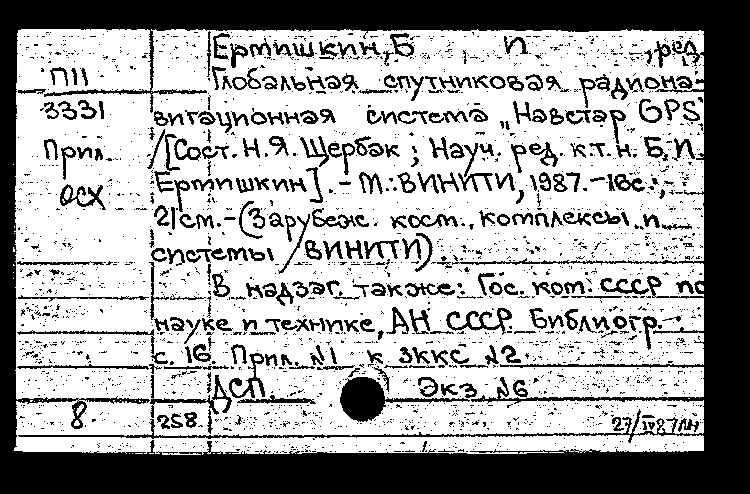 Ермишкин, Б П , ред.
П11 Глобальная спутниковая радиона-
3331 вигационная система „Навстар GPS"
Прил. /[Сост. Н.Я. Щербак; Науч. ред. к.т.н. Б.П.
ОСХ Ермишкин]. - М.: ВИНИТИ, 1987. - 16с.;
21см. - (Зарубеж. косм. комплексы и
системы / ВИНИТИ).
В надзаг. также: Гос. ком. СССР по
науке и технике, АН СССР. Библиогр.
с. 16. Прил. №1 к ЗККС №2.
ДСП. Экз. №6
8. 258 27/IV 87